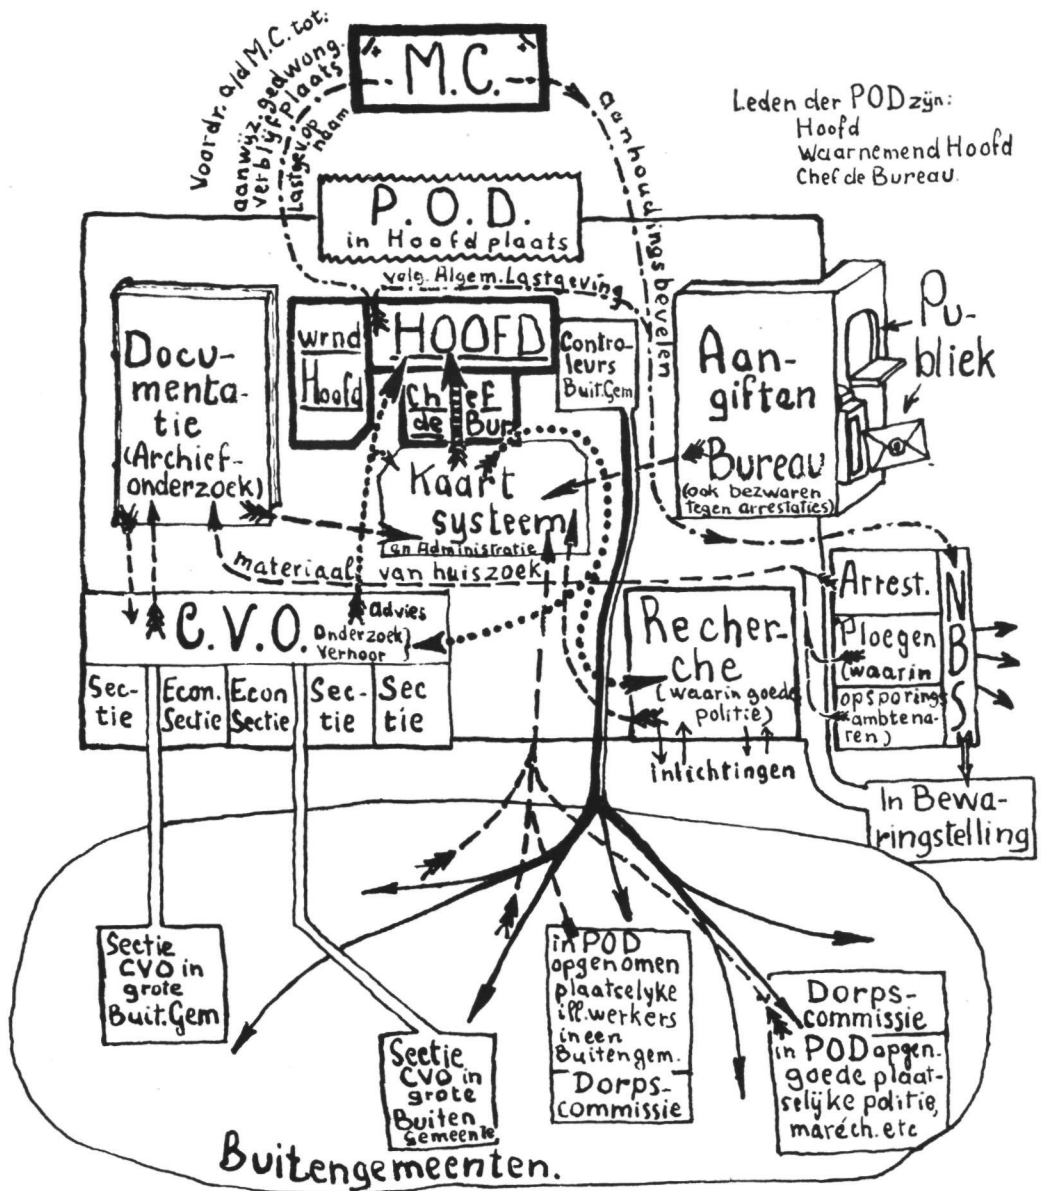 M.C.
Voordr. a/d M.C. tot:
aanwijz. gedwong.
verblijfplaats
Lastgev. op
naam
aanhoudingsbevelen
Leden der POD zijn:
Hoofd
Waarnemend Hoofd
Chef de Bureau.
P.O.D.
in Hoofdplaats
volg. Algem. Lastgeving
Docu-
menta-
tie
(Archief-
onderzoek)
wrnd
Hoofd
HOOFD
Chef
de Bur.
Contro-
leurs
Buit. Gem
Aan-
giften
Bureau
(ook bezwaren
tegen arrestaties)
Pu-
bliek
Kaart
systeem
en Administratie
materiaal van huiszoek
C.V.O.
advies
Onderzoek
Verhoor
Sec-
tie
Econ.
Sectie
Econ
Sectie
Sec-
tie
Sec
tie
Recher-
che
(waarin goede
politie)
inlichtingen
Arrest.
Ploegen
(waarin
opsporings
ambtena-
ren)
NBS
In Bewa-
ringstelling
Sectie
CVO in
grote
Buit. Gem
Sectie
CVO in
grote
Buiten
Gemeente
in POD
opgenomen
plaatcelyke
ill. werkers
in een
Buitengem.
Dorps-
commissie
Dorps-
commissie
in POD opgen.
goede plaat-
selijke politie,
maréch. etc
Buitengemeenten.